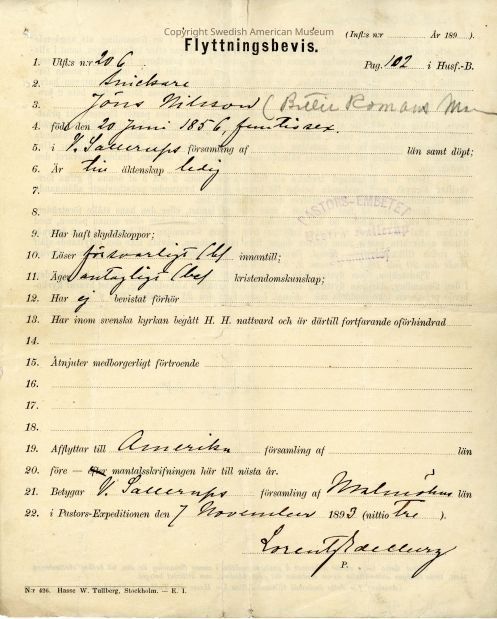 Copyright Swedish American Museum
Flyttningsbevis.
(Inflts n:r År 189 ).
1. Utflts n:r 206 Pag. 102 i Husf.-B.
2. Snickare
3. Jöns Nilsson (
4. född den 20 Juni 1856, femtiosex.
5. i V. Sallerups församling af län samt döpt;
6. Är till äktenskap ledig
7.
8.
PASTORS-EMBETET
Vestra Sallerup
9. Har haft skyddskoppor;
10. Läser försvarligt (bf innantill;
11. Äger antagligt (bef kristendomskunskap;
12. Har ej bevistat förhör
13. Har inom svenska kyrkan begått H. H. nattvard och är därtill fortfarande oförhindrad
14.
15. Åtnjuter medborgerligt förtroende
16.
17.
18.
19. Afflyttar till Amerika församling af län
20. före — efter mantalsskrifningen här till nästa år.
21. Betygar V. Sallerups församling af Malmöhus län
22. i Pastors-Expeditionen den 7 November 1893 (nittio Tre ).
P.
N:r 426. Hasse W. Tullberg, Stockholm. — E. I.